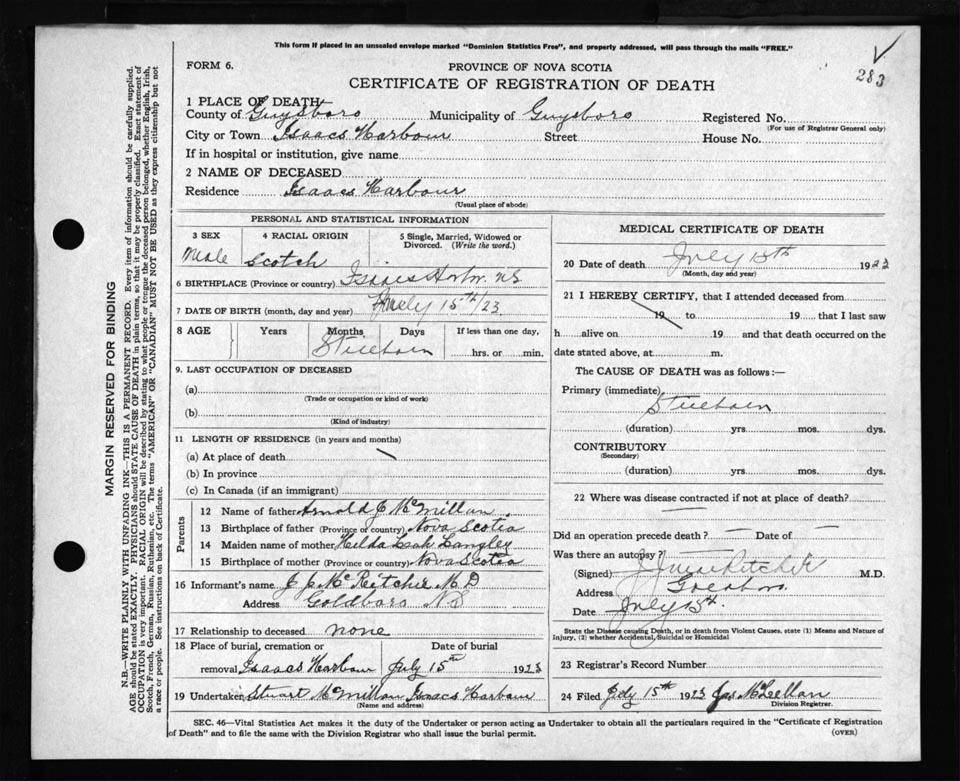 This form if placed in an unsealed envelope marked "Dominion Statistics Free", and properly addressed, will pass through the mails "FREE."
283
FORM 6.
PROVINCE OF NOVA SCOTIA
CERTIFICATE OF REGISTRATION OF DEATH
1 PLACE OF DEATH
County of Guysboro Municipality of Guysboro Registered No.
(For use of Registrar General only)
City or Town Isaacs Harbour Street House No.
If in hospital or institution, give name
2 NAME OF DECEASED
Residence Isaacs Harbour
(Usual place of abode)
PERSONAL AND STATISTICAL INFORMATION
3 SEX 4 RACIAL ORIGIN 5 Single, Married, Widowed or Divorced. (Write the word.)
Male Scotch
6 BIRTHPLACE (Province or country) Isaacs Harbr NS
7 DATE OF BIRTH (month, day and year) July 15th/23
8 AGE Years Months Days If less than one day,
Stillborn hrs. or min.
9. LAST OCCUPATION OF DECEASED
(a)
(Trade or occupation or kind of work)
(b)
(Kind of industry)
11 LENGTH OF RESIDENCE (in years and months)
(a) At place of death
(b) In province
(c) In Canada (if an immigrant)
Parents
12 Name of father Arnold J McMillan
13 Birthplace of father (Province or country) Nova Scotia
14 Maiden name of mother Hilda Leah Langley
15 Birthplace of mother (Province or country) Nova Scotia
16 Informant's name J J McRitchie M D
Address Goldboro N.S
17 Relationship to deceased none
18 Place of burial, cremation or Date of burial
removal Isaacs Harbour July 15th 1923
19 Undertaker Stuart McMillan Isaacs Harbour
(Name and address)
MEDICAL CERTIFICATE OF DEATH
20 Date of death July 15th 1923
(Month, day and year)
21 I HEREBY CERTIFY, that I attended deceased from
19 to 19 that I last saw
h alive on 19 and that death occurred on the
date stated above, at m.
The CAUSE OF DEATH was as follows:—
Primary (immediate)
Stillborn
(duration) yrs. mos. dys.
CONTRIBUTORY
(Secondary)
(duration) yrs. mos. dys.
22 Where was disease contracted if not at place of death?
Did an operation precede death? Date of
Was there an autopsy?
(Signed) J J MacRitchie M.D.
Address Goldboro
Date July 15th.
State the Disease causing Death, or in death from Violent Causes, state (1) Means and Nature of
Injury, (2) whether Accidental, Suicidal or Homicidal
23 Registrar's Record Number
24 Filed July 15th 1923 Jas McLellan
Division Registrar.
SEC. 46—Vital Statistics Act makes it the duty of the Undertaker or person acting as Undertaker to obtain all the particulars required in the "Certificate of Registration
of Death" and to file the same with the Division Registrar who shall issue the burial permit.
(OVER)
MARGIN RESERVED FOR BINDING
N.B.—WRITE PLAINLY WITH UNFADING INK—THIS IS A PERMANENT RECORD. Every item of information should be carefully supplied.
AGE should be stated EXACTLY. PHYSICIANS should STATE CAUSE OF DEATH in plain terms, so that it may be properly classified. Exact statement of
OCCUPATION is very important. RACIAL ORIGIN will be described by stating to what people or tongue the deceased person belonged, whether English, Irish,
Scotch, French, German, Russian, Ruthenian, etc. The terms "AMERICAN" OR "CANADIAN" MUST NOT BE USED as they express citizenship but not
a race or people. See instructions on back of Certificate.